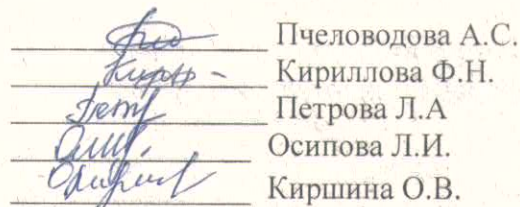 Пчеловодова А.С.
Кириллова Ф.Н.
Петрова Л.А
Осипова Л.И.
Киршина О.В.